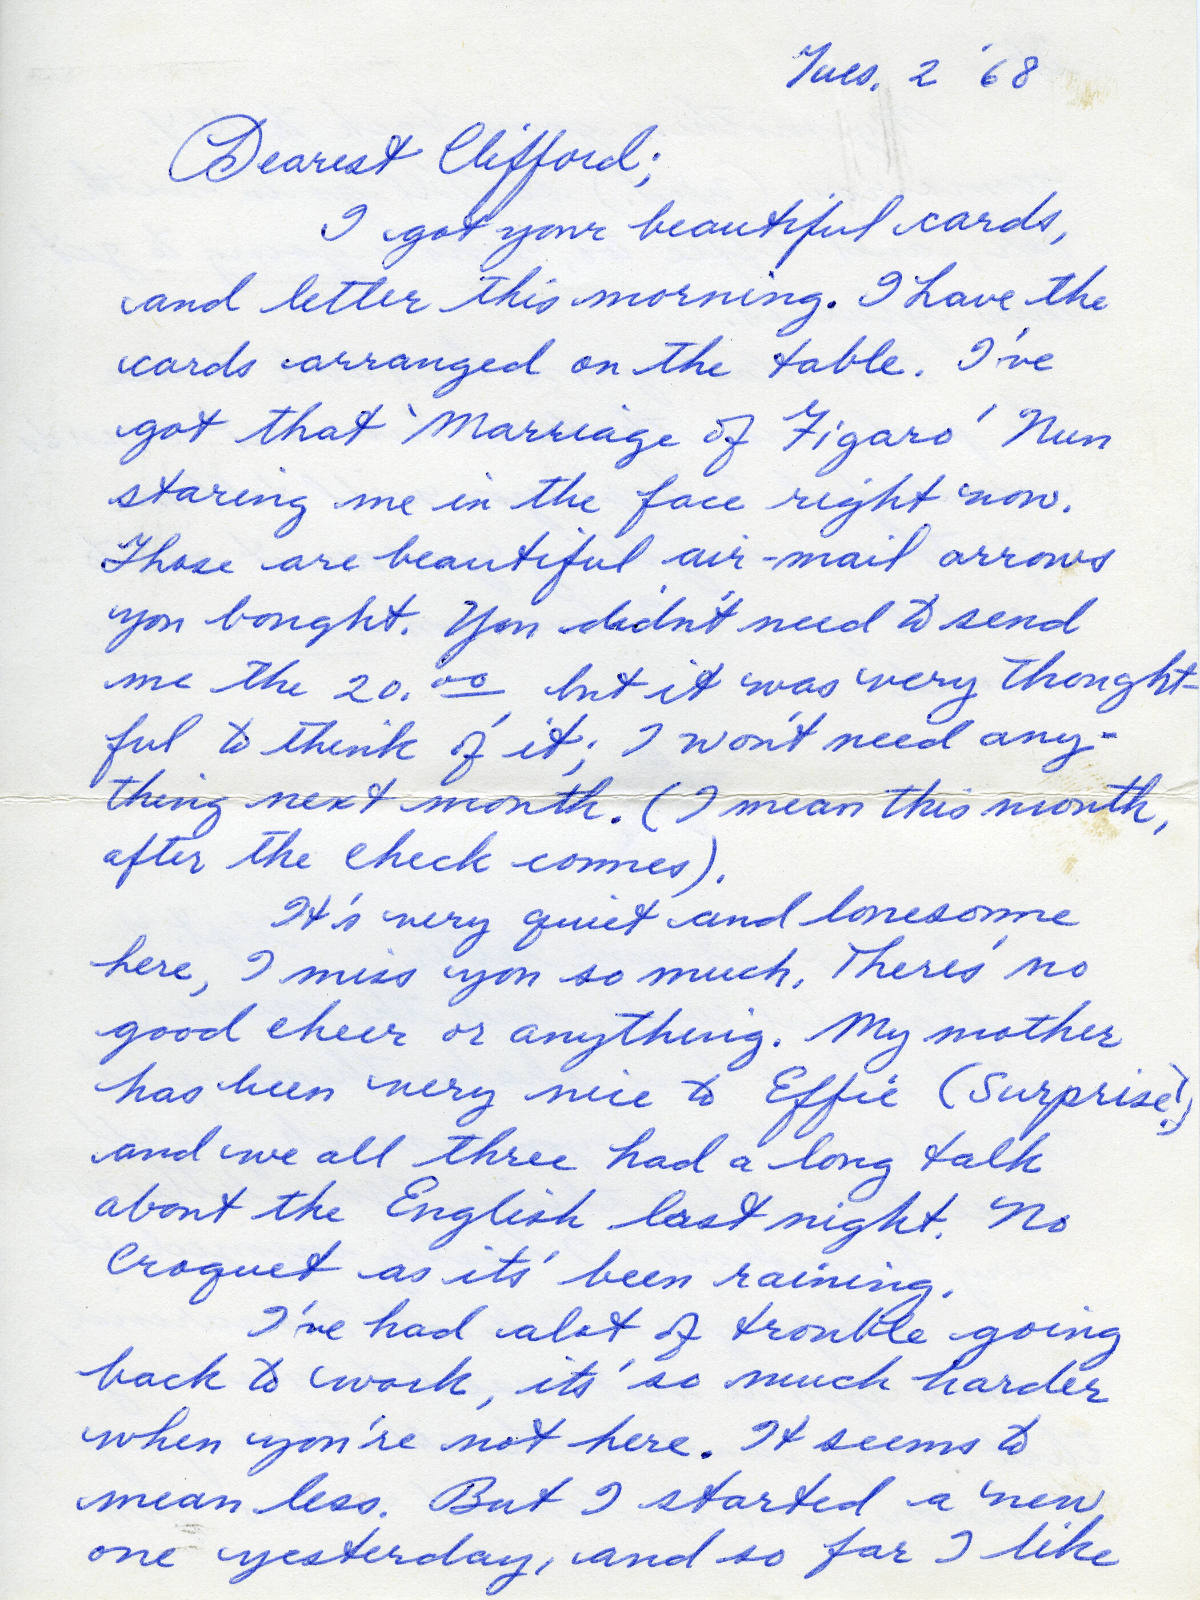 Tues. 2 '68
Dearest Clifford;
I got your beautiful cards,
and letter this morning. I have the
cards arranged on the table. I've
got that 'Marriage of Figaro' Nun
staring me in the face right now.
Those are beautiful air-mail arrows
you bought. You didn't need to send
me the 20.00, but it was very thought-
ful to think of it; I won't need any-
thing next month. (I mean this month,
after the check comes).
It's very quiet and lonesome
here, I miss you so much. Theres' no
good cheer or anything. My mother
has been very nice to Effie (Surprise!)
and we all three had a long talk
about the English last night. No
Croquet as its' been raining.
I've had alot of trouble going
back to work, its' so much harder
when you're not here. It seems to
mean less. But I started a new
one yesterday, and so far I like